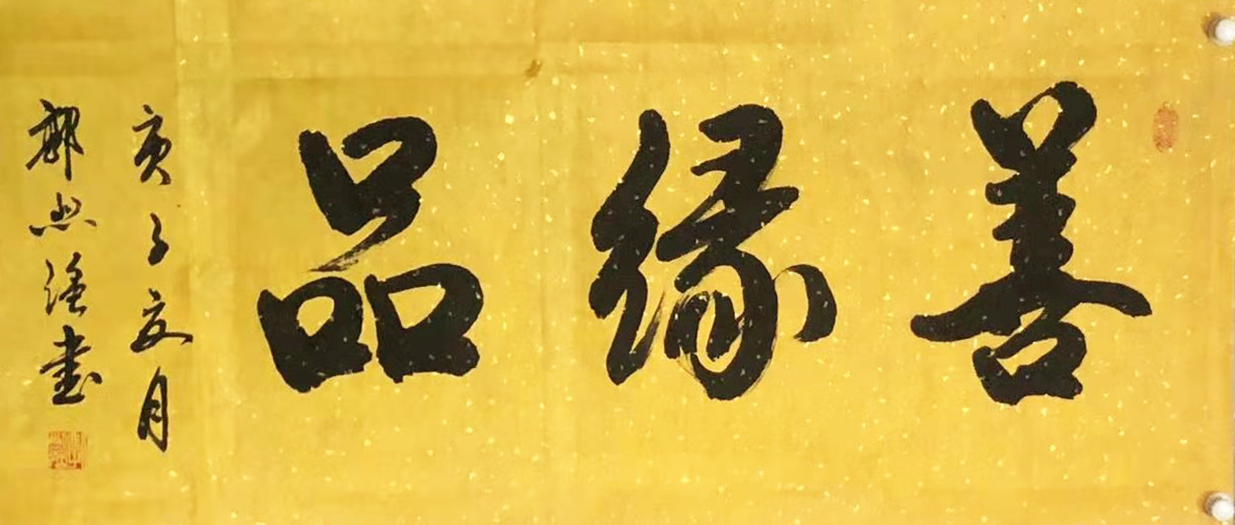 善缘品
庚子夏月
郭兴书